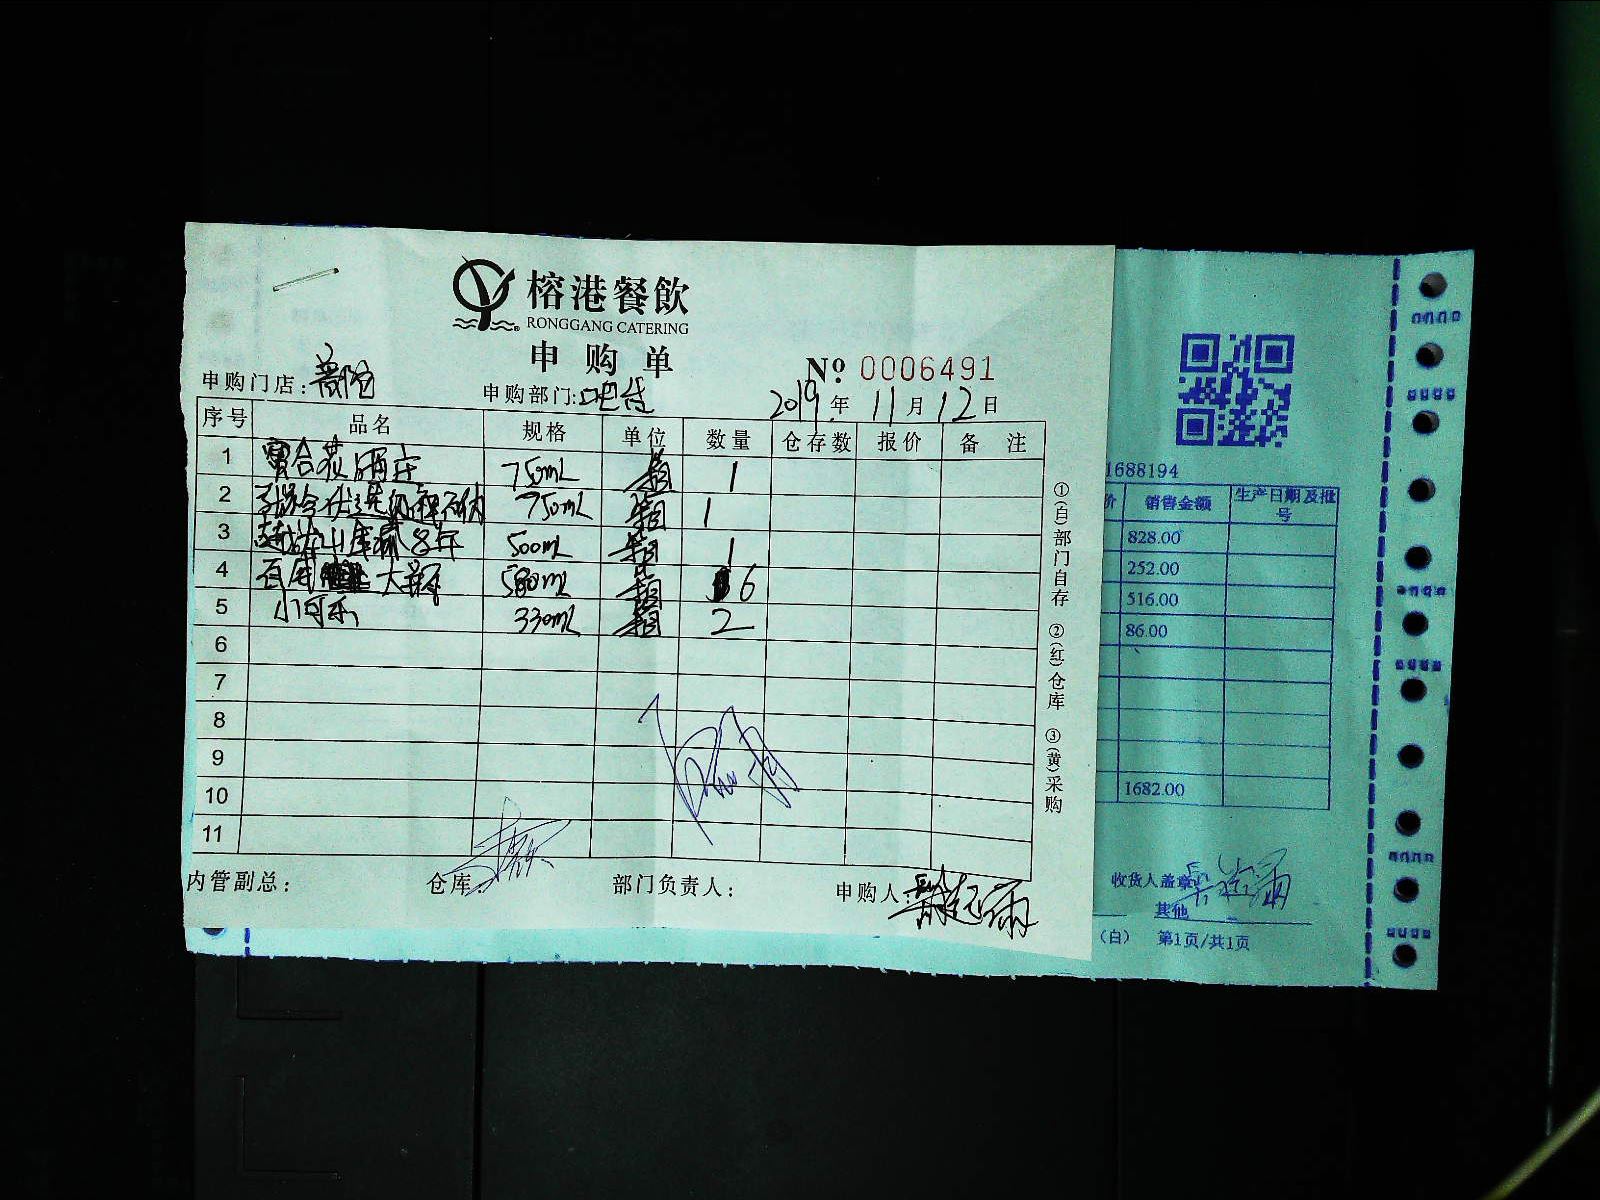 榕港餐飲
RONGGANG CATERING
申购单
№ 0006491
申购门店:
申购部门:吧台
2019年11月12日
序号 品名 规格 单位 数量 仓存数 报价 备注
1 酒庄 750mL 箱 1
2 750mL 箱 1
3 库藏8年 500mL 箱 1
4 百威 大瓶 580mL 箱 6
5 小可乐 330mL 箱 2
6
7
8
9
10
11
内管副总:
仓库:
部门负责人:
申购人:
①(白)部门自存 ②(红)仓库 ③(黄)采购
1688194
价 销售金额 生产日期及批号
828.00
252.00
516.00
86.00
1682.00
收货人盖章
其他
(白) 第1页/共1页